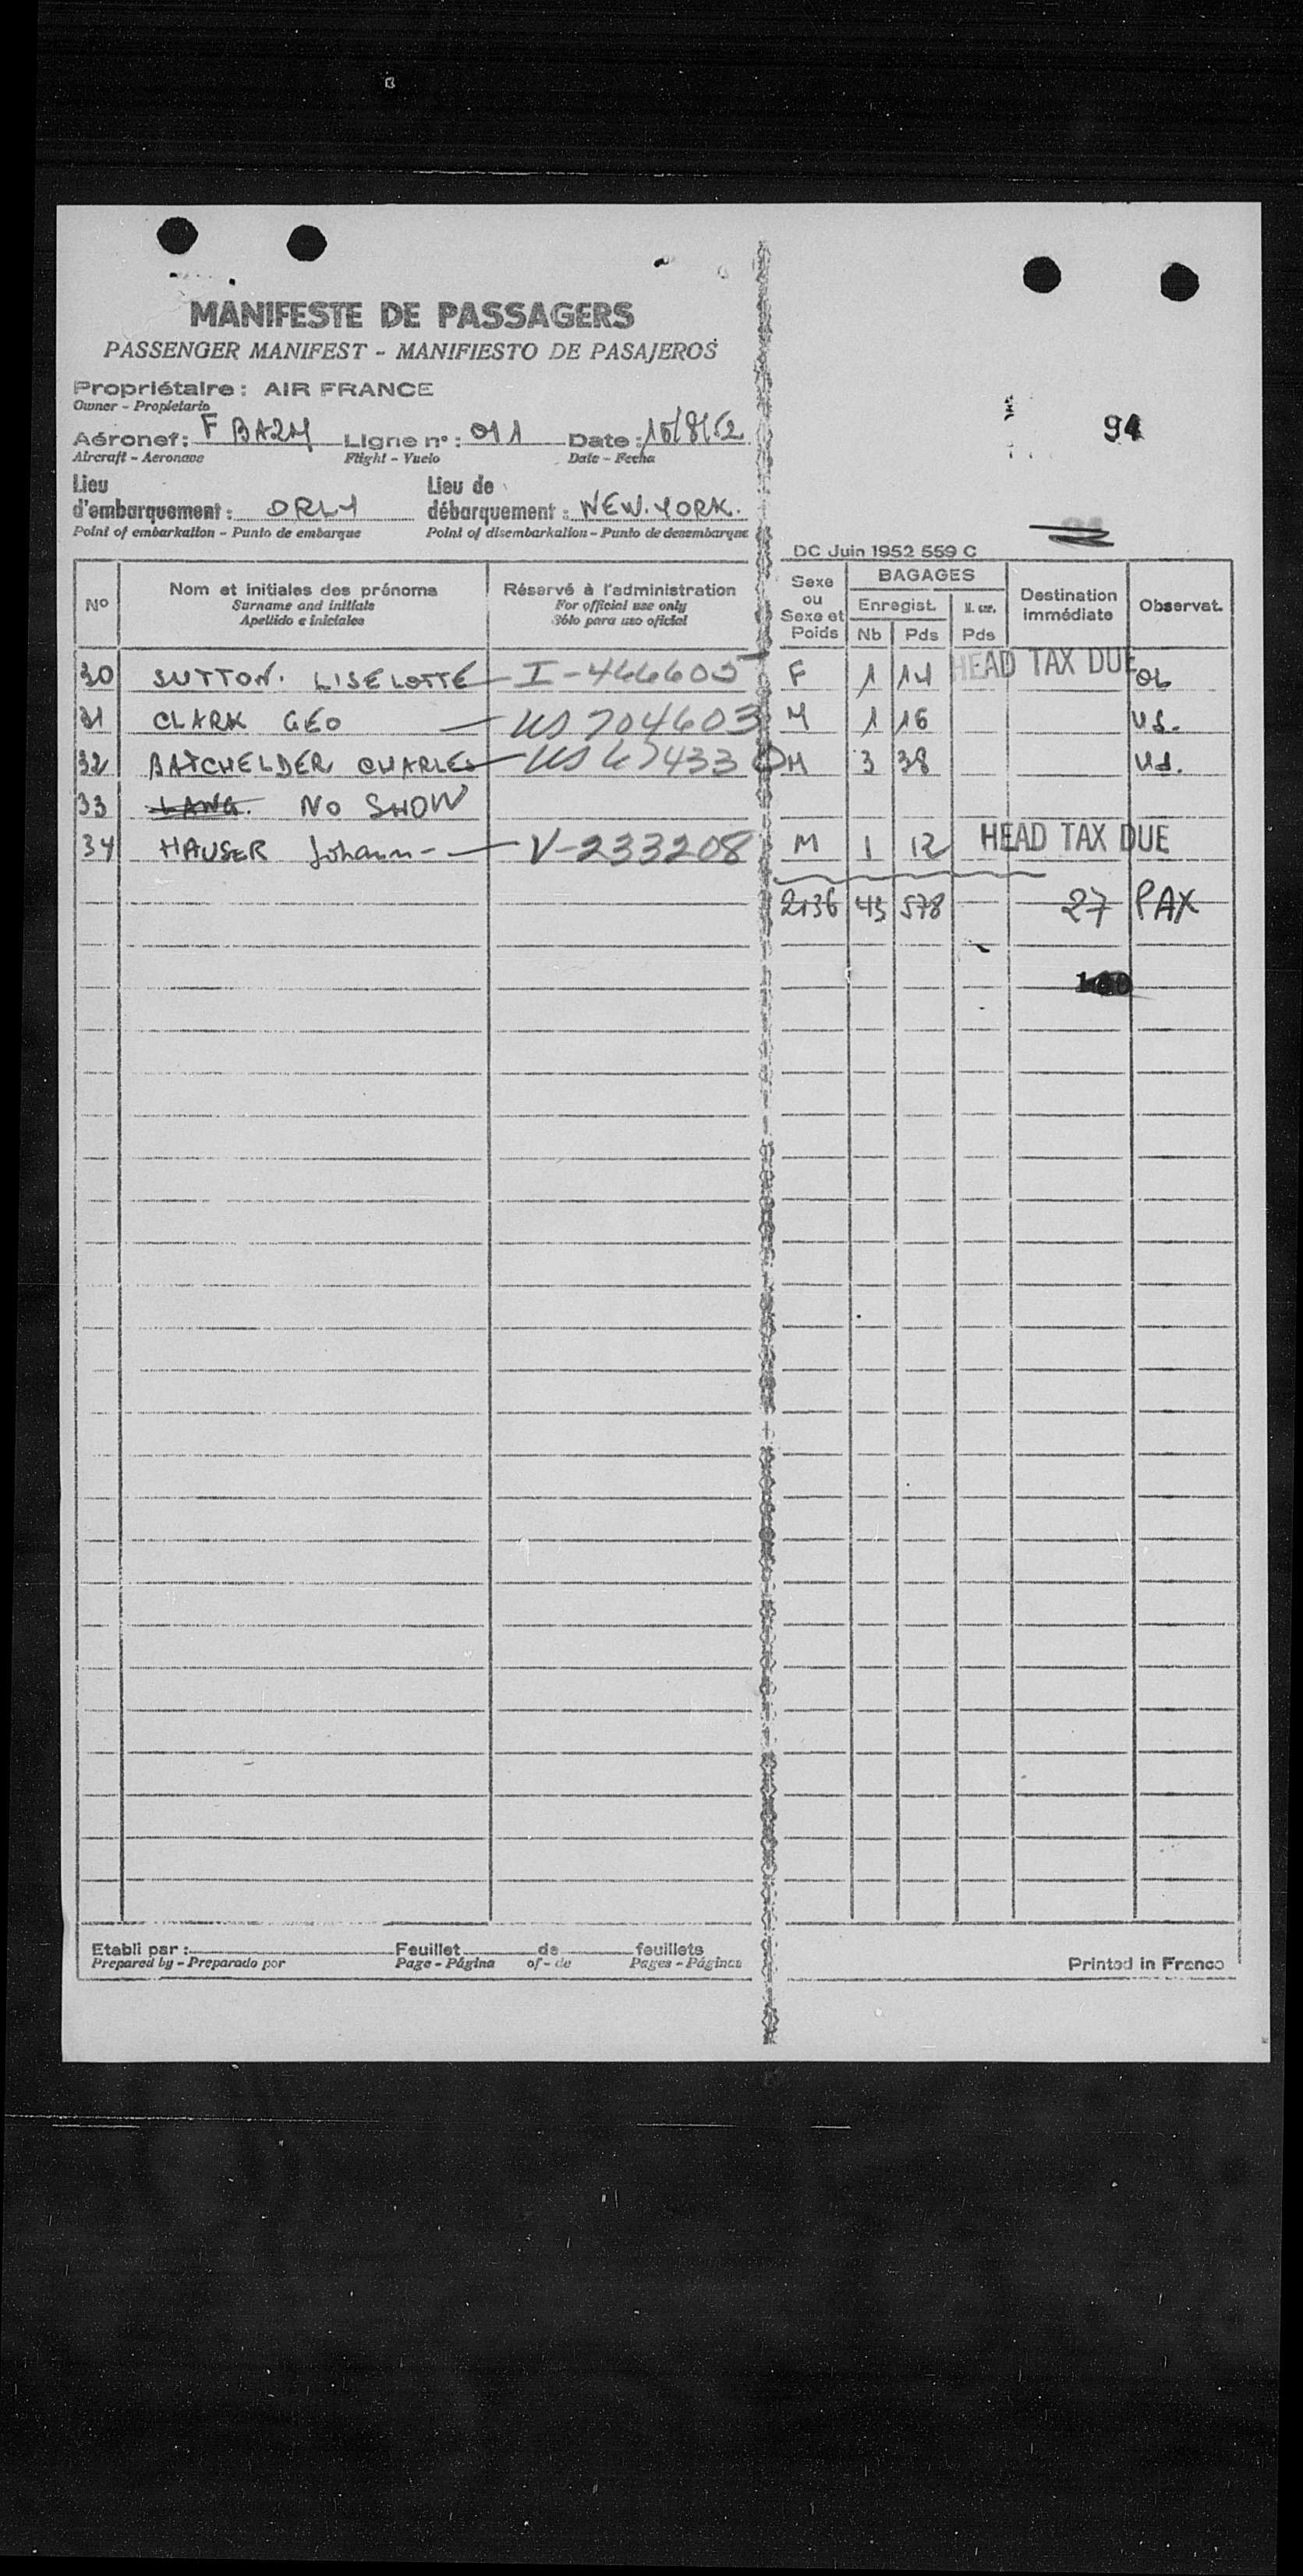 MANIFESTE DE PASSAGERS
PASSENGER MANIFEST - MANIFIESTO DE PASAJEROS
Propriétaire : AIR FRANCE
Owner - Propietario
Aéronef : F BAZM Ligne n° : 011 Date : 15/8/52
Aircraft - Aeronave Flight - Vuelo Date - Fecha
94
Lieu d'embarquement : ORLY Lieu de débarquement : NEW.YORK.
Point of embarkation - Punto de embarque Point of disembarkation - Punto de desembarque
DC Juin 1952 559 C
N° Nom et initiales des prénoms Réservé à l'administration Sexe ou Sexe et Poids BAGAGES Destination immédiate Observat.
Surname and initials For official use only Enregist. N. enr.
Apellido e iniciales Sólo para uso oficial Nb Pds Pds
30 SUTTON. LISELOTTE I-466605 F 1 14 HEAD TAX DUE
31 CLARK GEO US 704603 M 1 16 US.
32 BATCHELDER CHARLES US 67433 M 3 38 US.
33 LANG. NO SHOW
34 HAUSER Johann - V-233208 M 1 12 HEAD TAX DUE
2136 43 578 27 PAX
Etabli par : Feuillet de feuillets
Prepared by - Preparado por Page - Página of - de Pages - Páginas
Printed in France